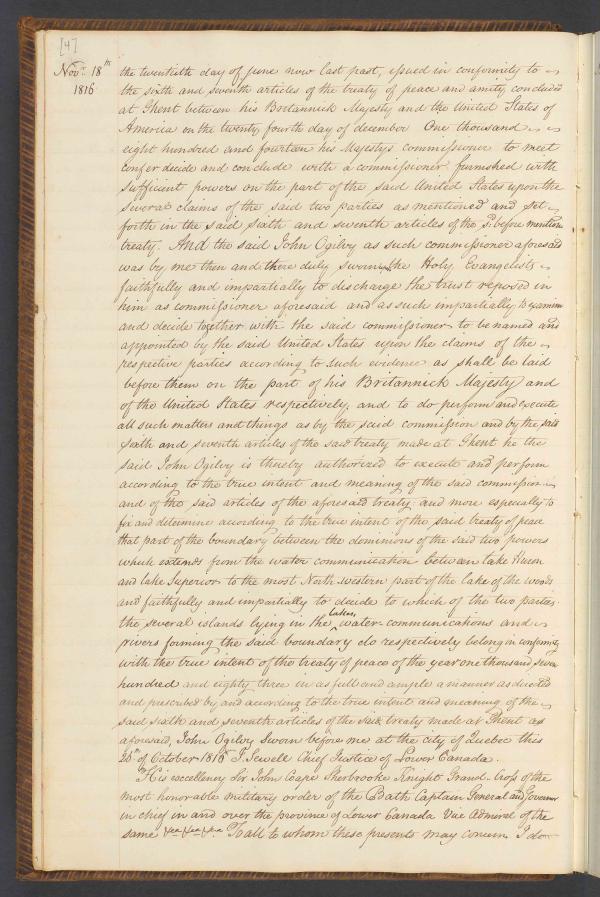 [4]
Novr. 18th
1816
the twentieth day of June now last past, issued in conformity to
the sixth and seventh articles of the treaty of peace and amity concluded
at Ghent between his Britannick Majesty and the United States of
America on the twenty fourth day of december One thousand
eight hundred and fourteen his Majesty's commissioner to meet
confer decide and conclude with a commissioner furnished with
sufficient powers on the part of the said United States upon the
several claims of the said two parties as mentioned and set
forth in the said sixth and seventh articles of the sd. before mention
treaty. And the said John Ogilvy as such commissioner aforesaid
was by me then and there duly sworn on the Holy Evangelists
faithfully and impartially to discharge the trust reposed in
him as commissioner aforesaid and as such impartially to examine
and decide together with the said commissioner to be named and
appointed by the said United States upon the claims of the
respective parties according to such evidence as shall be laid
before them on the part of his Britannick Majesty and
of the United States respectively, and to do perform and execute
all such matters and things as by the said commission and by the said
sixth and seventh articles of the said treaty made at Ghent he the
said John Ogilvy is thereby authorized to execute and perform
according to the true intent and meaning of the said commission
and of the said articles of the aforesaid treaty: and more especially to
fix and determine according to the true intent of the said treaty of peace
that part of the boundary between the dominions of the said two powers
which extends from the water communication between lake Huron
and lake Superior to the most North western part of the lake of the woods
and faithfully and impartially to decide to which of the two parties
the several islands lying in the lakes, water communications and
rivers forming the said boundary do respectively belong in conformity
with the true intent of the treaty of peace of the year one thousand seven
hundred and eighty three in as full and ample a manner as directed
and prescribed by and according to the true intent and meaning of the
said sixth and seventh articles of the said treaty made at Ghent as
aforesaid, John Ogilvy Sworn before me at the city of Quebec this
26th of October 1816 J. Sewell Chief Justice of Lower Canada.
His excellency Sir John Coape Sherbrooke Knight Grand Cross of the
most honorable military order of the Bath Captain General and Governor
in chief in and over the province of Lower Canada Vice Admiral of the
same &ca &ca &ca To all to whom these presents may concern I do